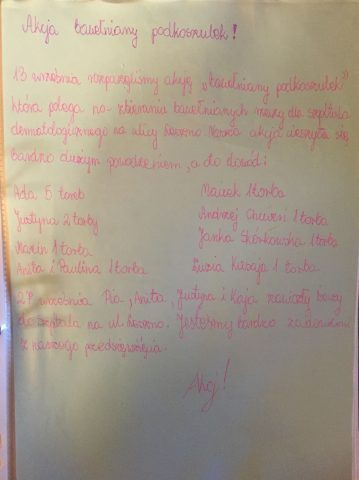 Akcja bawełniany podkoszulek!
13 września rozpoczęliśmy akcję „bawełniany podkoszulek”
która polega na zbieraniu bawełnianych rzeczy dla szpitala
dermatologicznego na ulicy Leszno. Nasza akcja cieszyła się
bardzo dużym powodzeniem, a oto dowód:
Ada 5 toreb
Justyna 2 torby
Marcin 1 torba
Anita i Paulina 1 torba
Maciek 1 torba
Andrzej 1 torba
Janka 1 torba
Zuzia 1 torba
27 września Pia, Anita, Justyna i Kaja zawiozły rzeczy
do szpitala na ul. Leszno. Jesteśmy bardzo zadowoleni
z naszego przedsięwzięcia.
Ahoj!